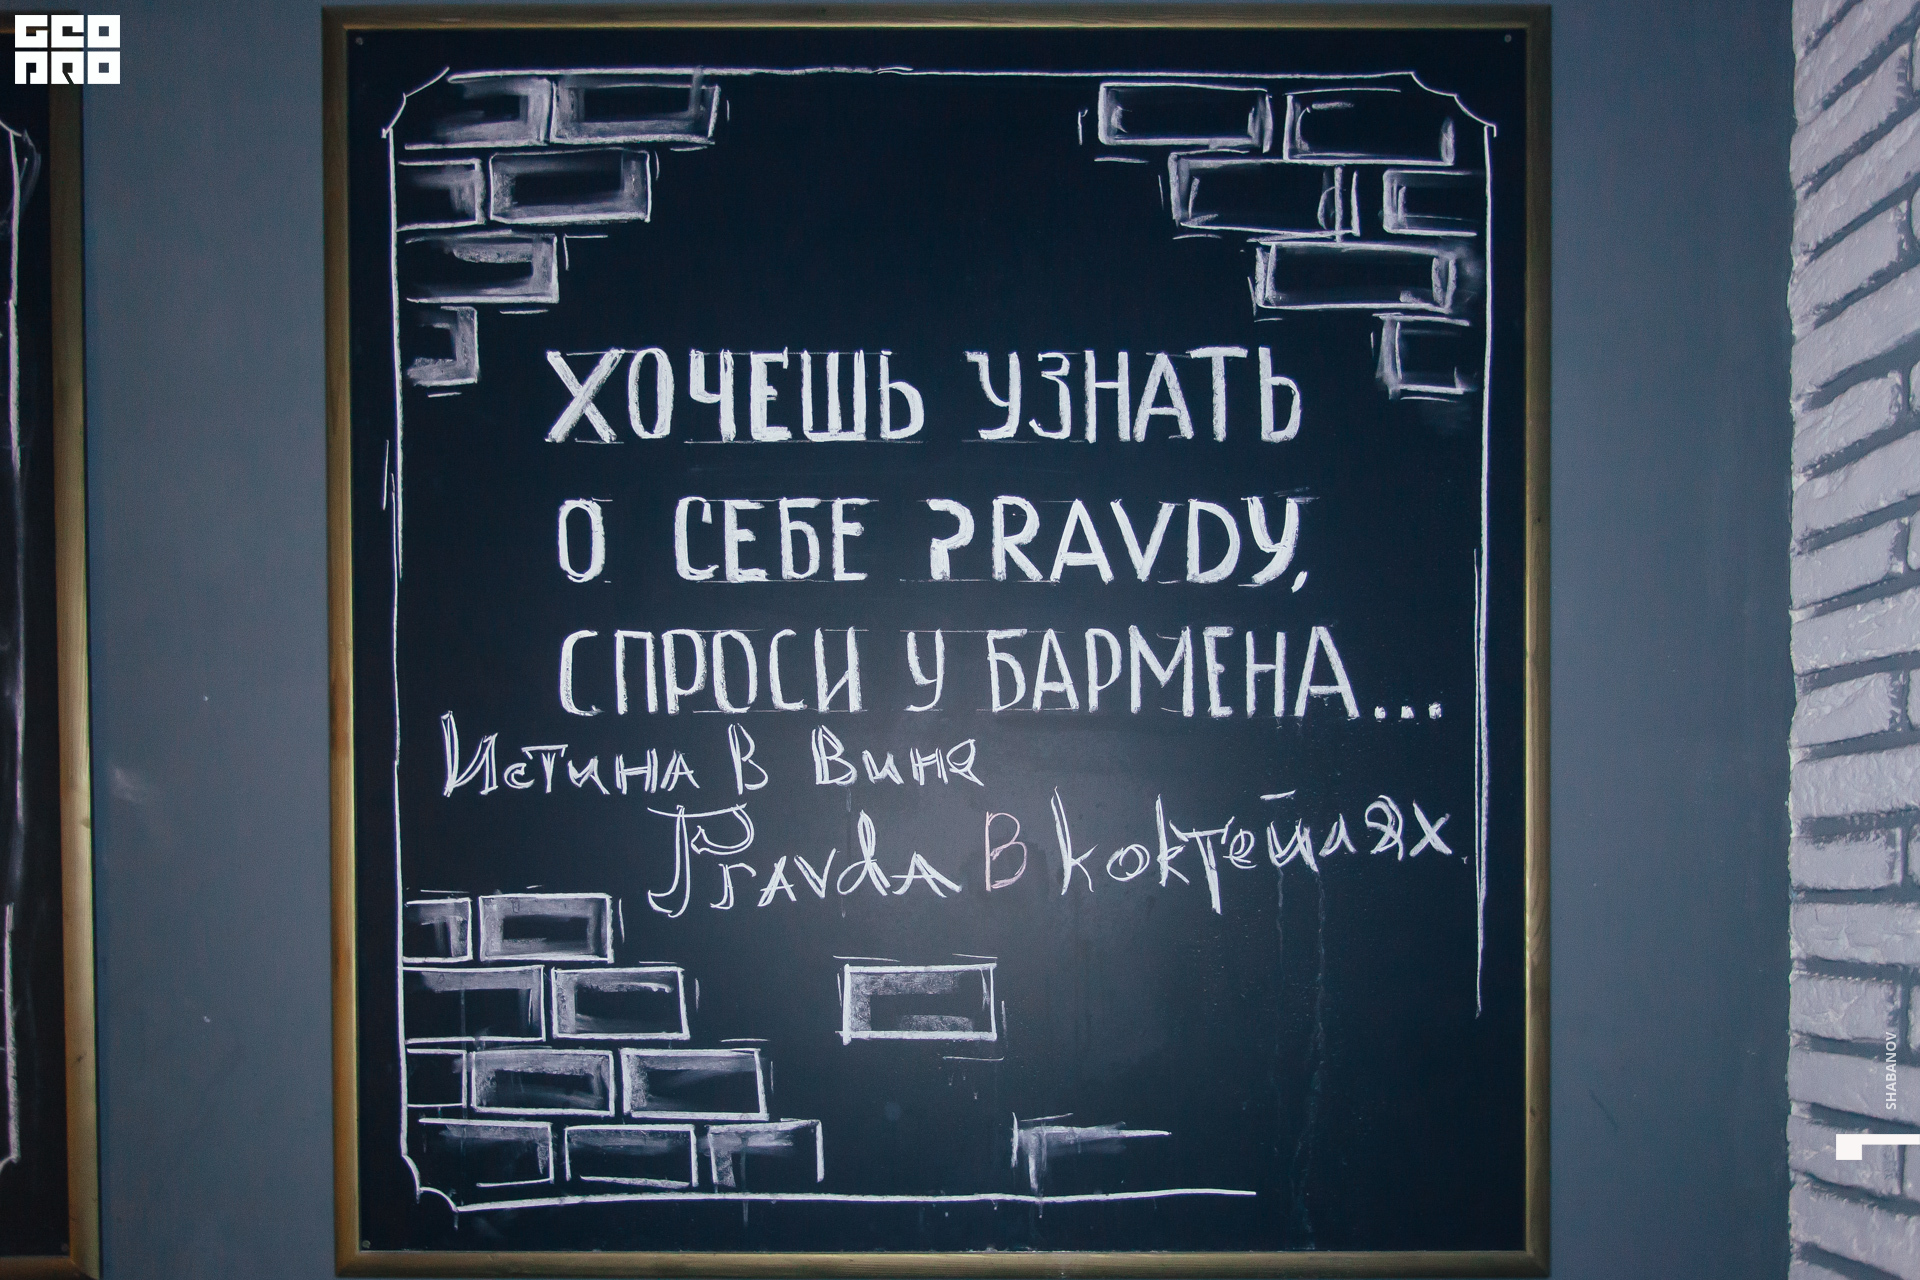 GEO
PRO
ХОЧЕШЬ УЗНАТЬ
О СЕБЕ PRAVDУ,
СПРОСИ У БАРМЕНА...
Истина В Вине
Pravda В коктейлях.
SHABANOV